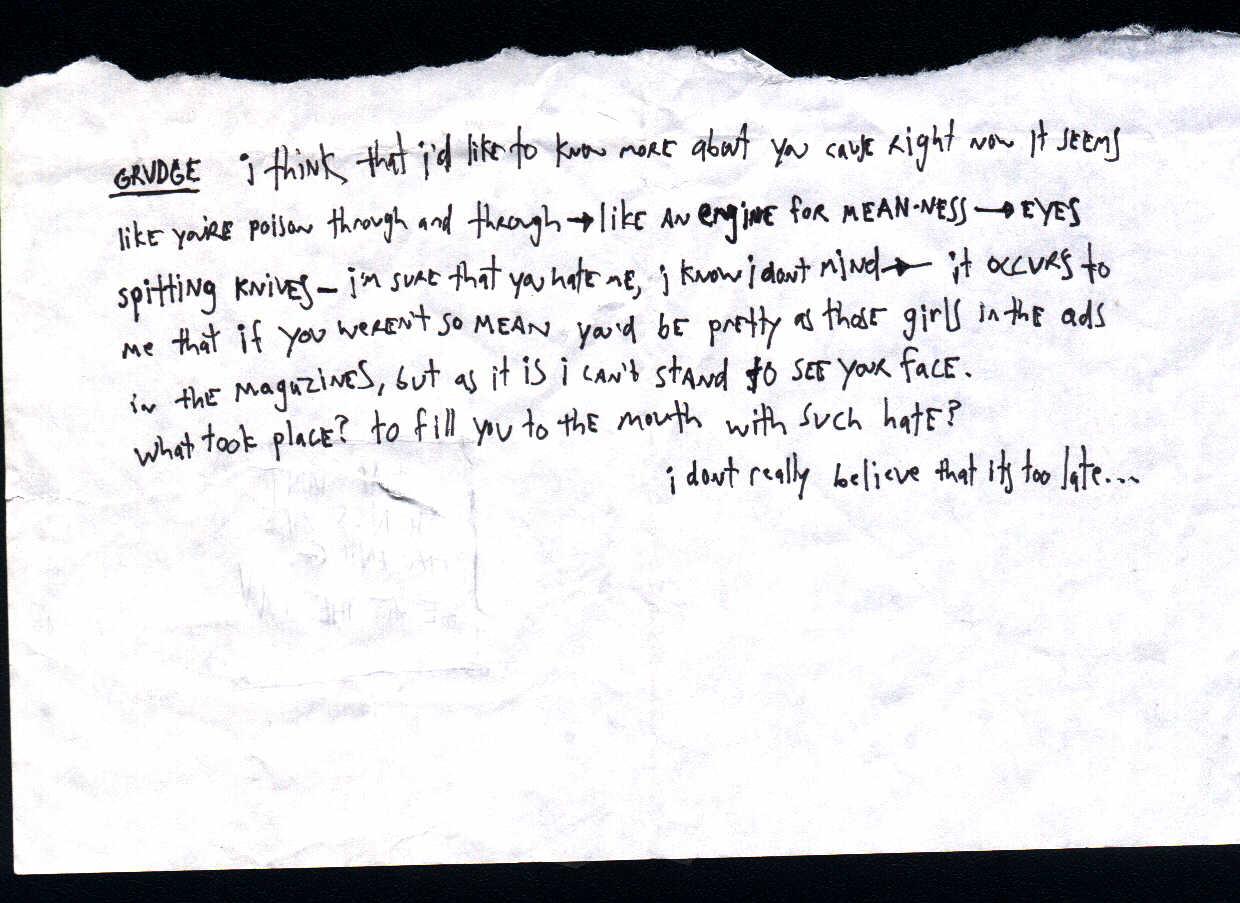 GRUDGE i think that i'd like to know more about you cause right now it seems
like you're poison through and through → like an engine for mean-ness → eyes
spitting knives – i'm sure that you hate me, i know i dont mind → it occurs to
me that if you weren't so mean you'd be pretty as those girls in the ads
in the magazines, but as it is i can't stand to see your face.
what took place? to fill you to the mouth with such hate?
i dont really believe that its too late...